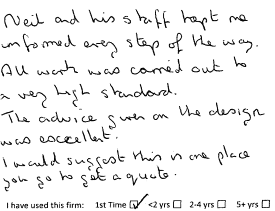 Neil and his staff kept me
informed every step of the way.
All work was carried out to
a very high standard.
The advice given on the design
was excellent.
I would suggest this is one place
you go to get a quote.
I have used this firm: 1st Time ☑ <2 yrs ☐ 2-4 yrs ☐ 5+ yrs ☐